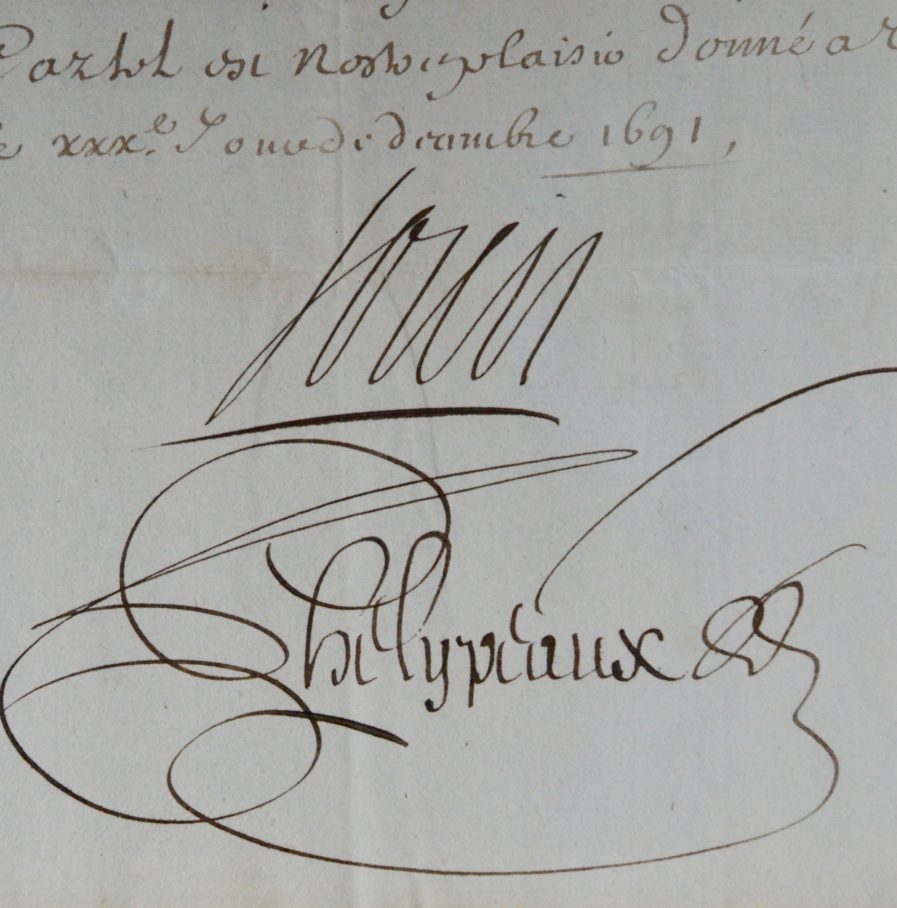 Car tel est Nostre plaisir donné a
xxx.e Jour de decembre 1691,
Louis
Phelypeaux